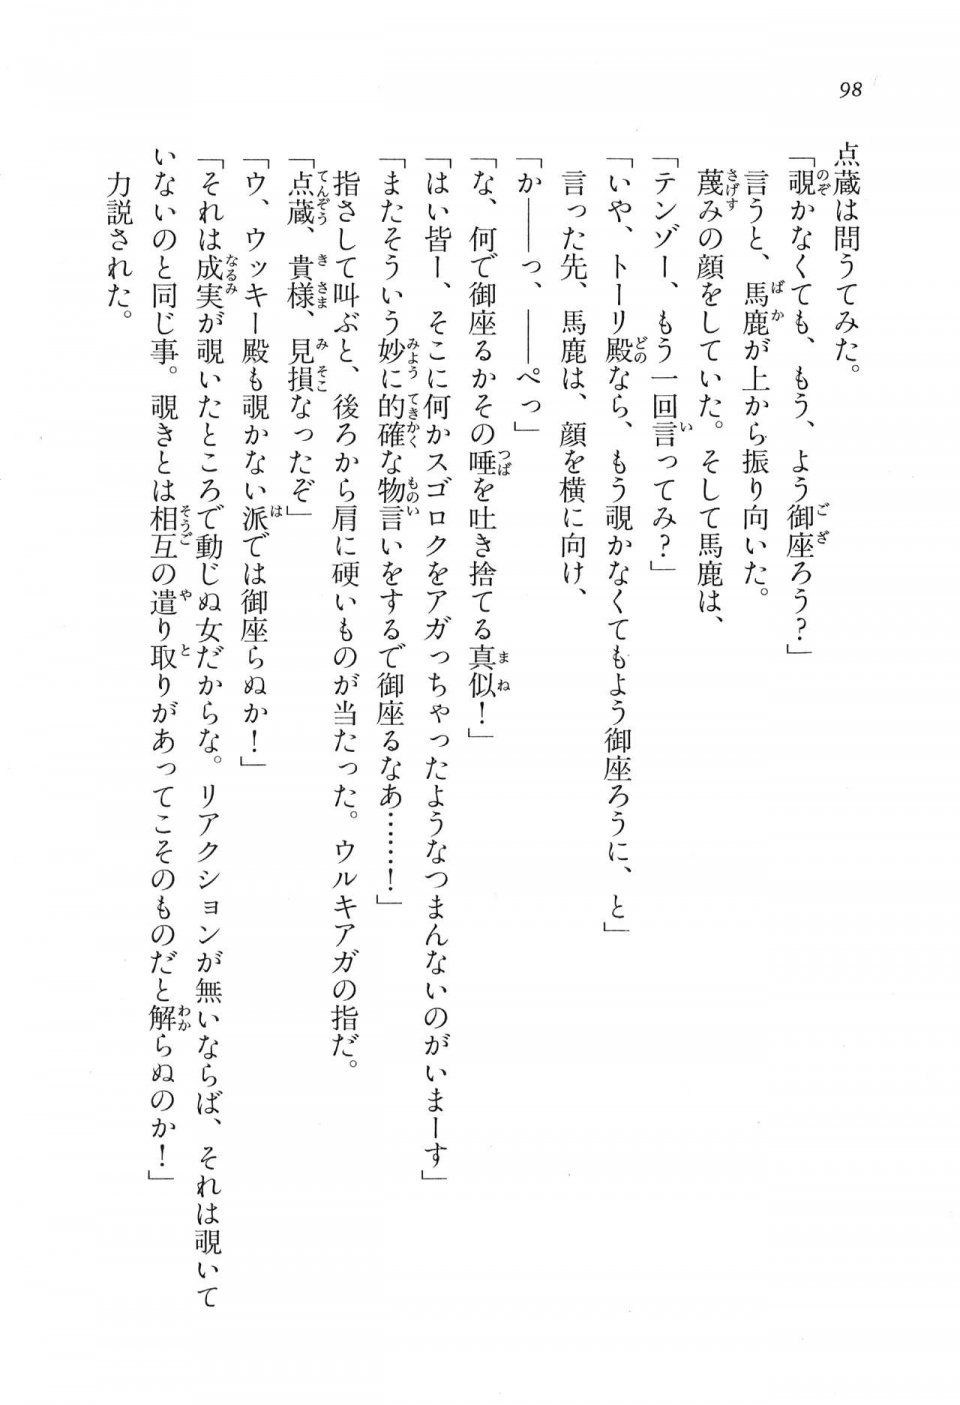 98
点蔵は問うてみた。
「覗かなくても、もう、よう御座ろう？」
言うと、馬鹿が上から振り向いた。
蔑みの顔をしていた。そして馬鹿は、
「テンゾー、もう一回言ってみ？」
「いや、トーリ殿なら、もう覗かなくてもよう御座ろうに、と」
言った先、馬鹿は、顔を横に向け、
「か――っ、――ぺっ」
「な、何で御座るかその唾を吐き捨てる真似！」
「はい皆ー、そこに何かスゴロクをアガっちゃったようなつまんないのがいまーす」
「またそういう妙に的確な物言いをするで御座るなあ……！」
指さして叫ぶと、後ろから肩に硬いものが当たった。ウルキアガの指だ。
「点蔵、貴様、見損なったぞ」
「ウ、ウッキー殿も覗かない派では御座らぬか！」
「それは成実が覗いたところで動じぬ女だからな。リアクションが無いならば、それは覗いて
いないのと同じ事。覗きとは相互の遣り取りがあってこそのものだと解らぬのか！」
力説された。